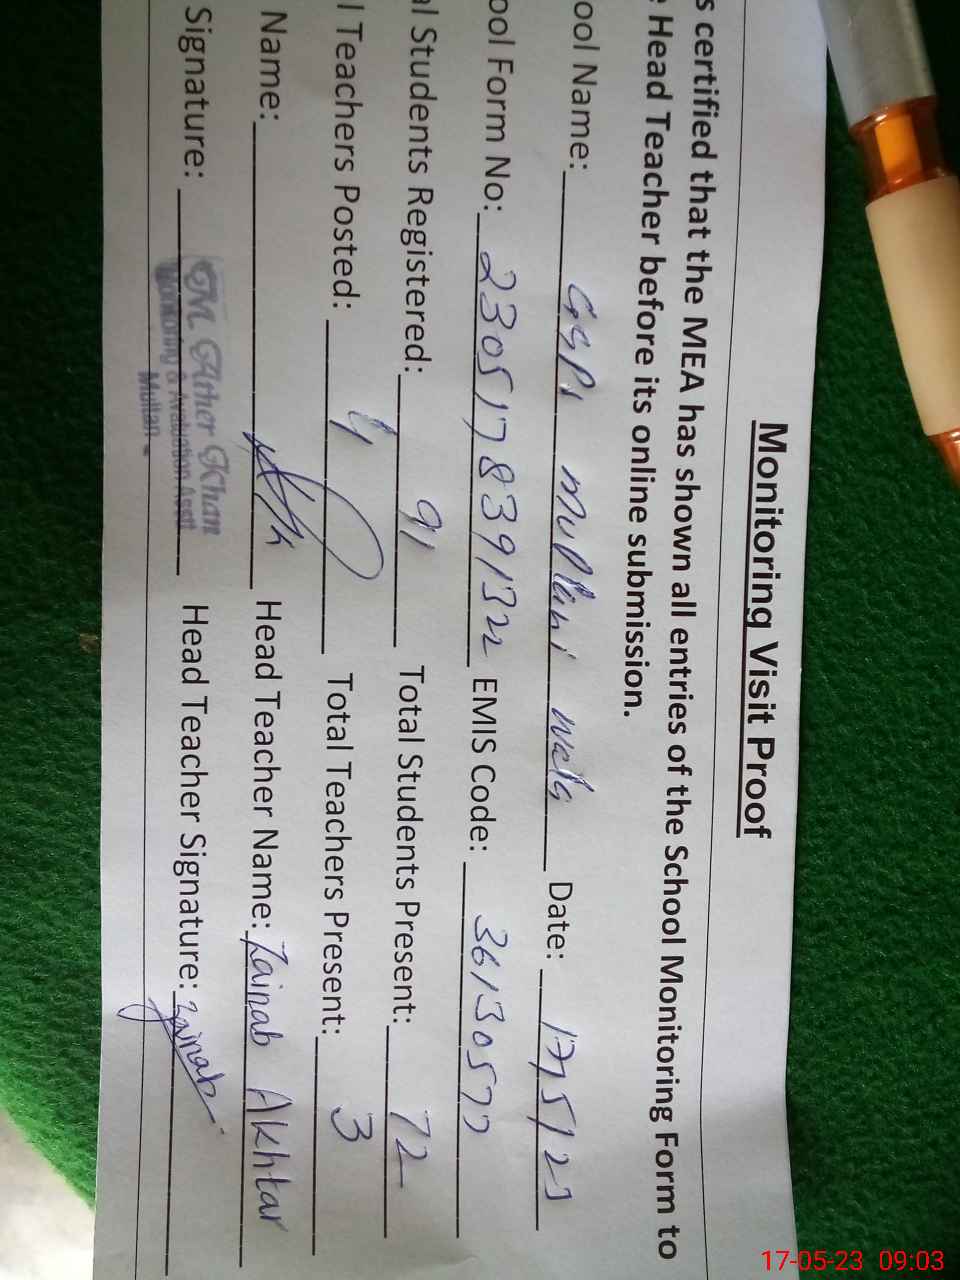 Monitoring Visit Proof
s certified that the MEA has shown all entries of the School Monitoring Form to
e Head Teacher before its online submission.
ool Name: GGPS Multani wala Date: 17/5/23
ool Form No: 2305178391322 EMIS Code: 36130577
al Students Registered: 91 Total Students Present: 72
l Teachers Posted: 4 Total Teachers Present: 3
Name: Head Teacher Name: Zainab Akhtar
Signature: M. Ather Khan Head Teacher Signature: Zainab
Monitoring & Evaluation Asstt
Multan
17-05-23 09:03